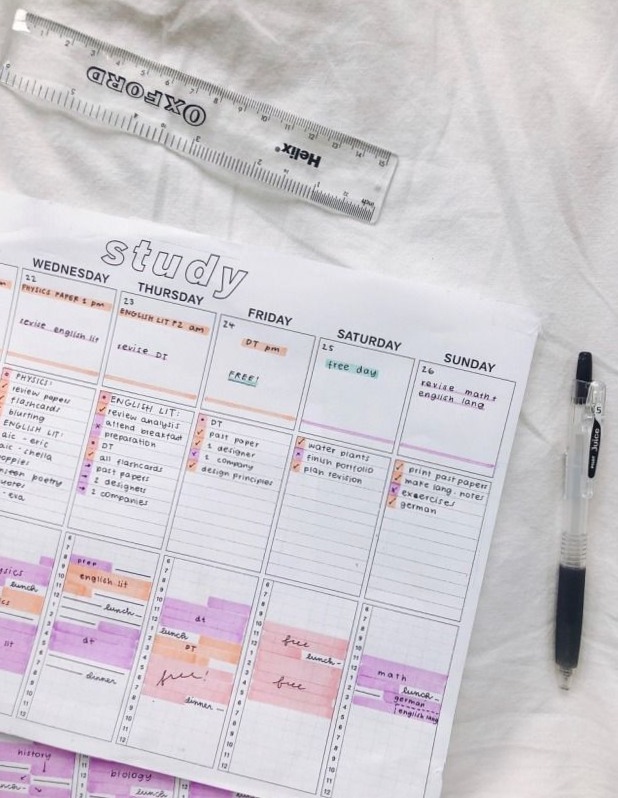 OXFORD
Helix®
study
WEDNESDAY
22
PHYSICS PAPER 2 pm
revise english lit
PHYSICS:
review papers
flashcards
blurting
ENGLISH LIT:
aic - eric
aic - sheila
poppies
unseen poetry
quotes
- eva
lunch
lit
THURSDAY
23
ENGLISH LIT P2 am
revise DT
ENGLISH LIT:
review analysis
attend breakfast
preparation
DT
all flashcards
past papers
2 designers
2 companies
prep
english lit
lunch
dt
dinner
FRIDAY
24
DT pm
FREE!
DT
past paper
1 designer
1 company
design principles
dt
lunch
DT
free!
dinner
SATURDAY
25
free day
water plants
finish portfolio
plan revision
free
lunch
free
SUNDAY
26
revise maths
english lang
print past papers
make lang. notes
exercises
german
math
lunch
german
english lang
history
lunch
biology
lunch
PILOT Juice